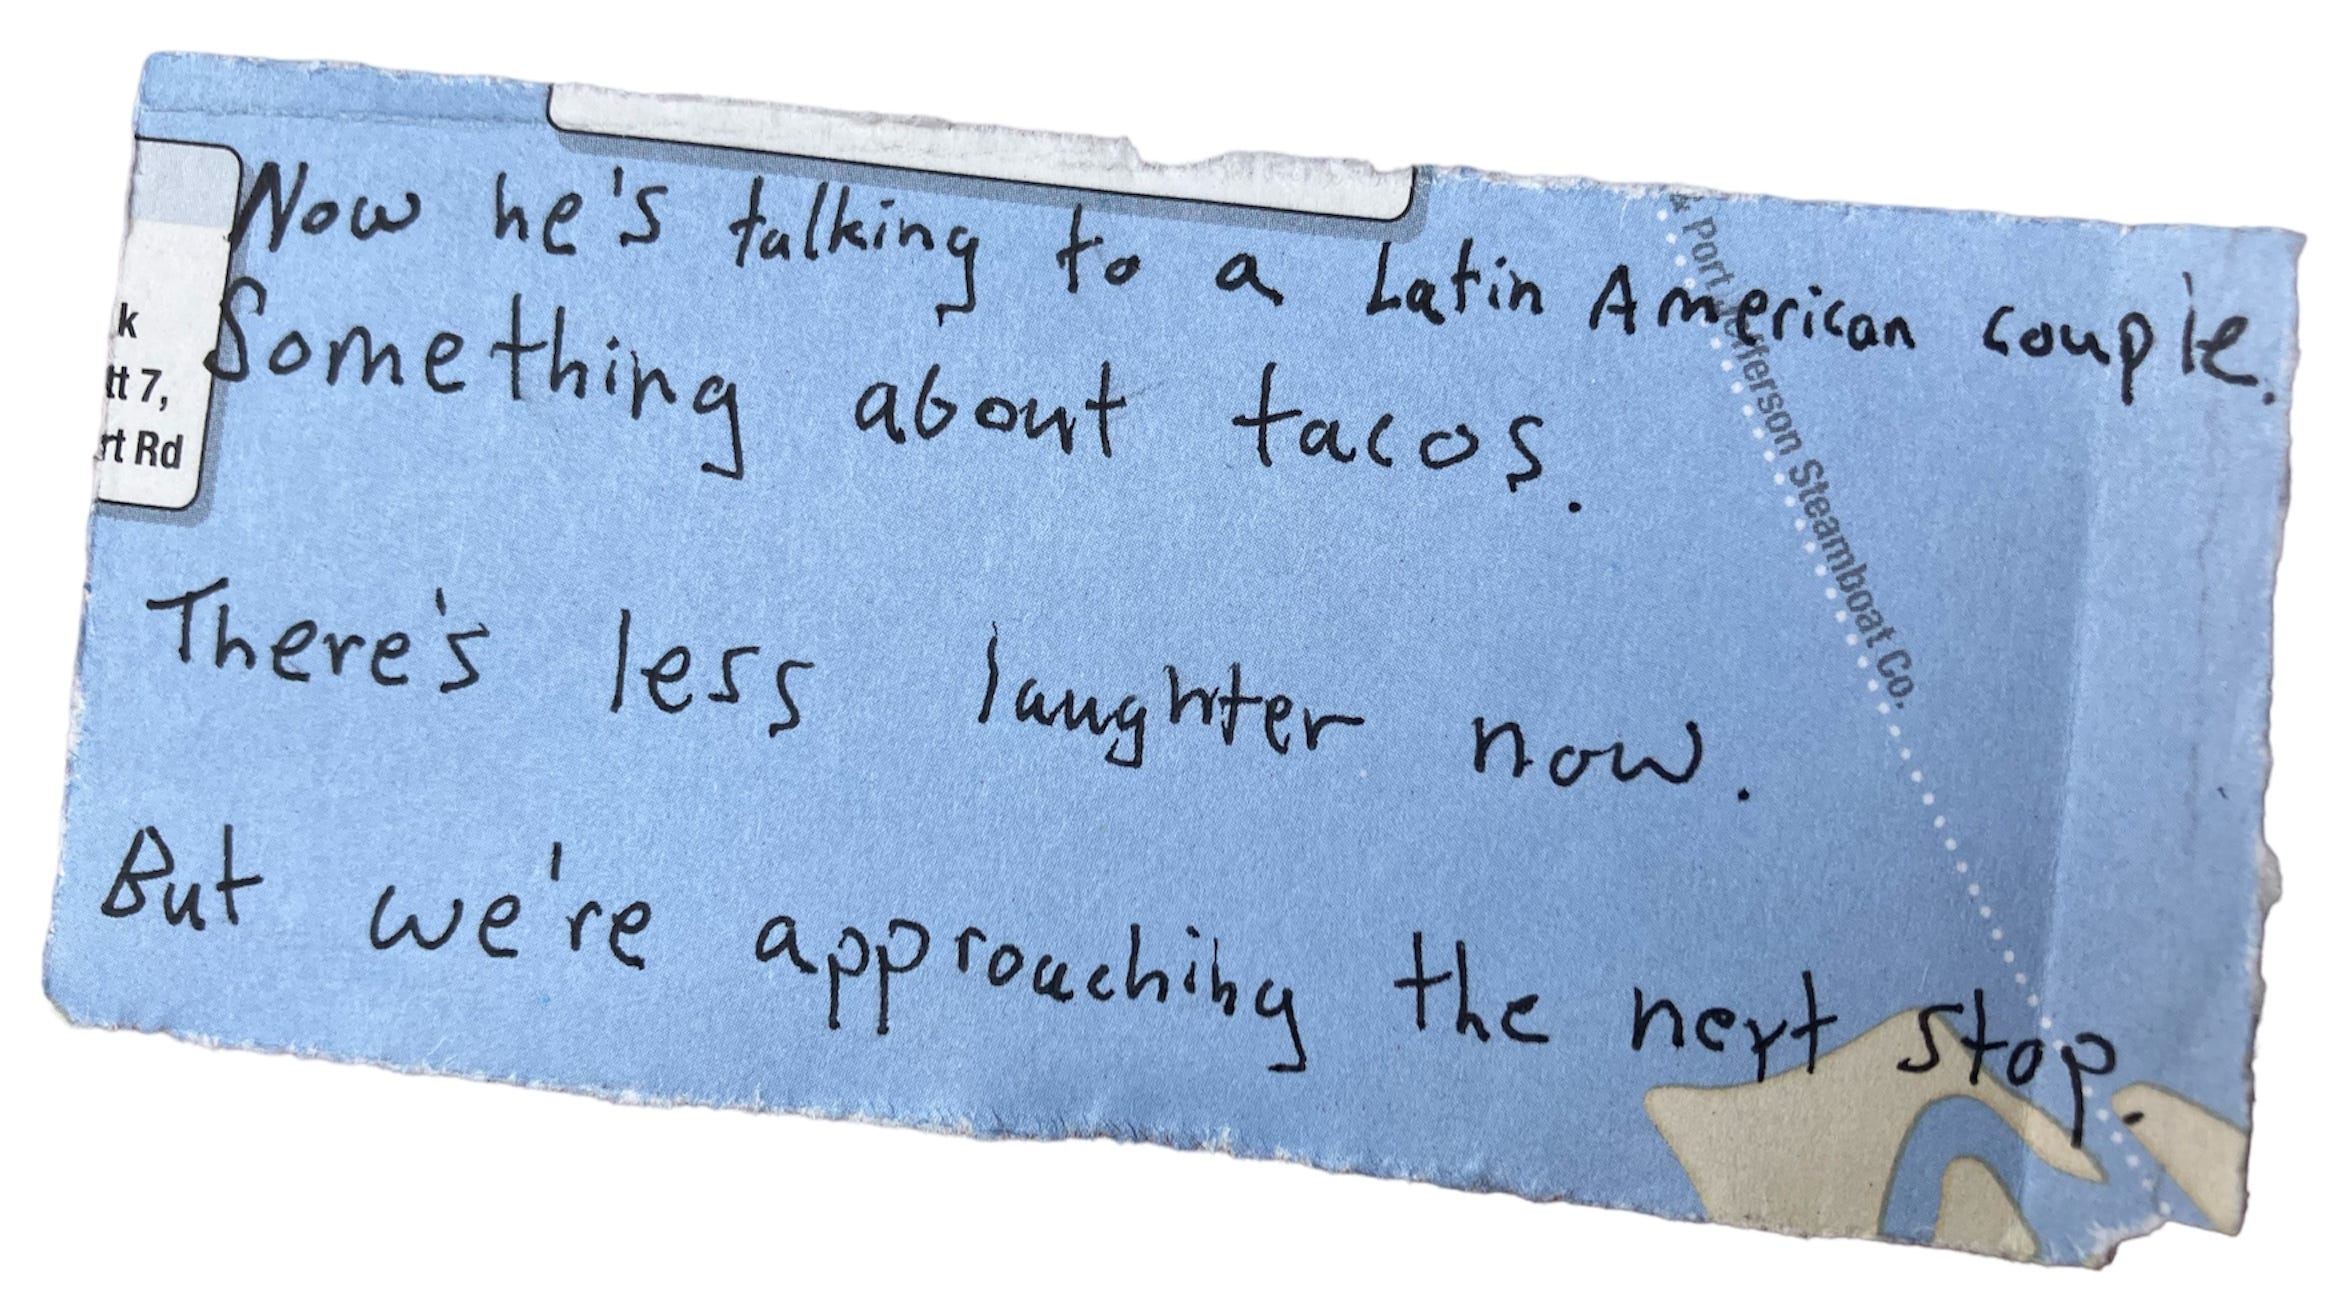 Now he's talking to a Latin American couple.
Something about tacos.
There's less laughter now.
But we're approaching the next stop.
k
tt 7,
rt Rd
& Port Jefferson Steamboat Co.